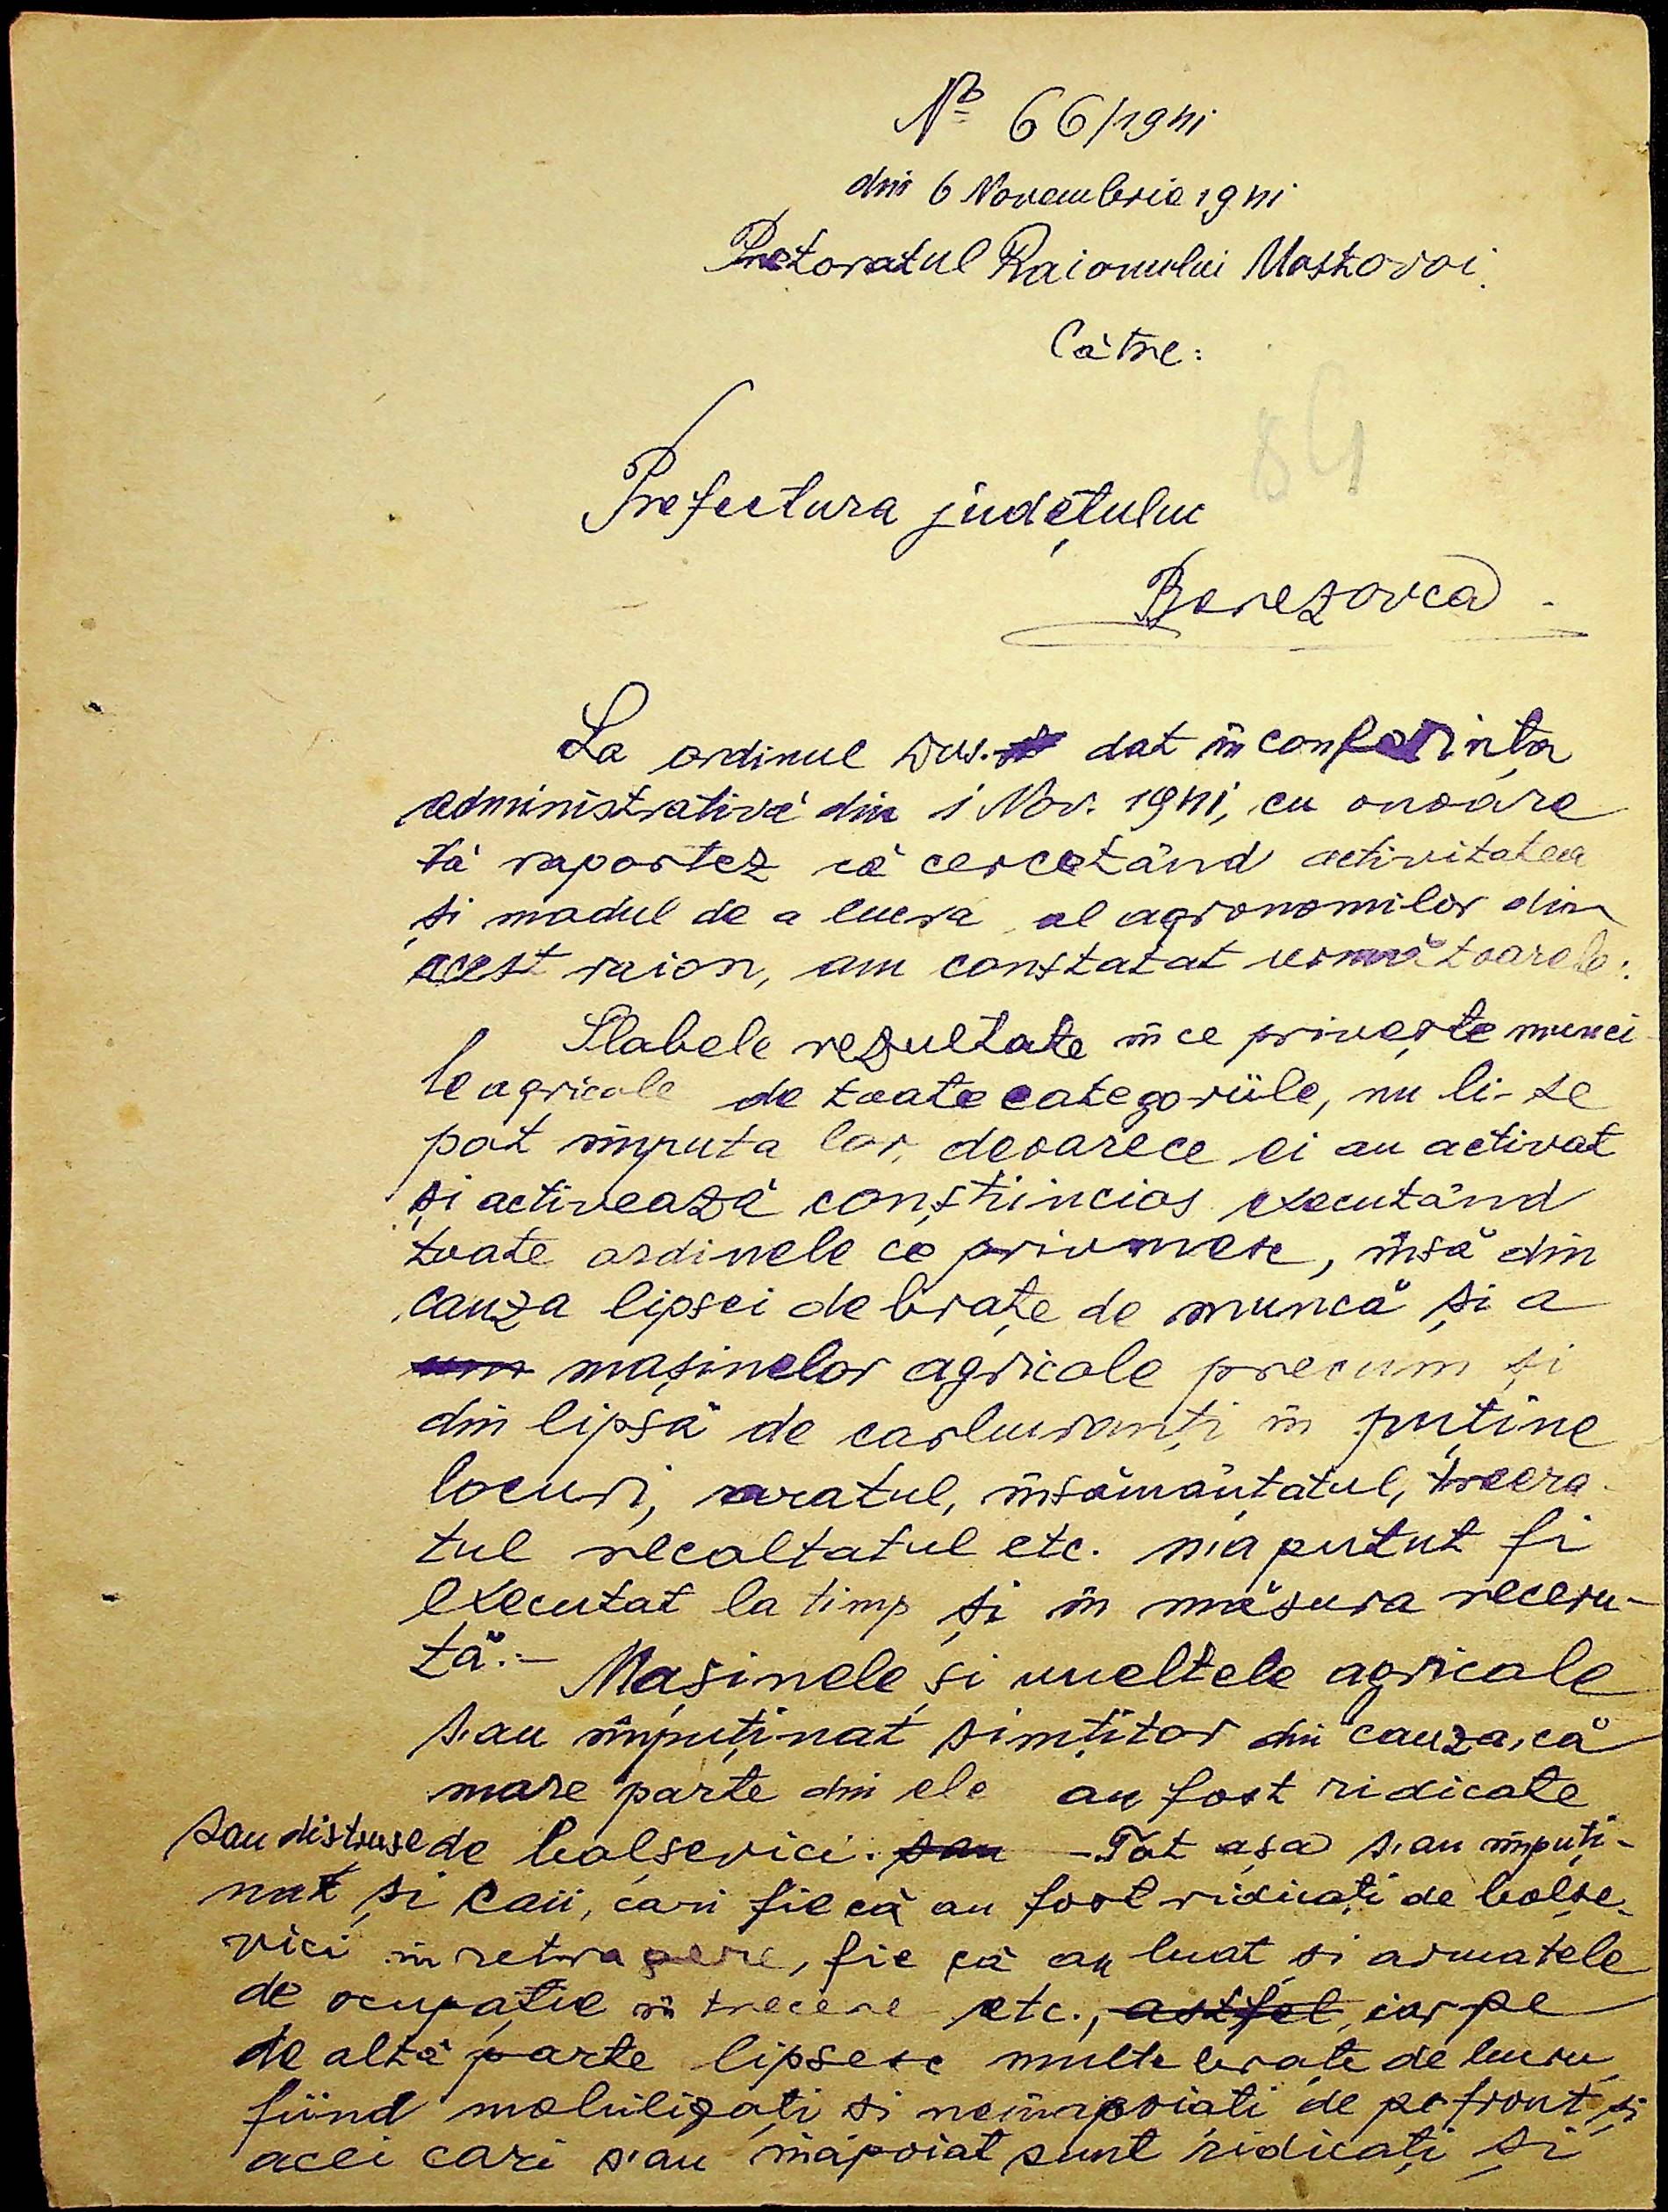 № 66/1941
din 6 Novembrie 1941
Pretoratul Raionului Mostovoi.
Către:
84
Prefectura județului
Berezovca -
La ordinul Dvs. dat în conferința
administrativă din 1 Nov. 1941, cu onoare
să raportez că cercetând activitatea
și modul de a lucra al agronomilor din
acest raion, am constatat următoarele:
Slabele rezultate în ce privește munci-
le agricole de toate categoriile, nu li-se
pot imputa lor, deoarece ei au activat
și activează conștiincios executând
toate ordinele ce primesc, însă din
cauza lipsei de brațe de muncă și a
mașinelor agricole precum și
din lipsă de carburanți în puține
locuri, aratul, însămânțatul, treera-
tul recoltatul etc. n'a putut fi
executat la timp și în măsura neceru-
tă.- Mașinele și uneltele agricole
s'au împuținat simțitor din cauza, că
mare parte din ele au fost ridicate
sau distruse de bolșevici. sau - Tot așa s'au împuți-
nat și caii, cari fie că au fost ridicați de bolșe-
vici în retragere, fie că au luat și armatele
de ocupație în trecere etc., astfel, iar pe
de altă parte lipsesc multe brațe de lucru
fiind mobilizați și neînapoiați de pe front și
acei cari s'au înapoiat sunt ridicați și